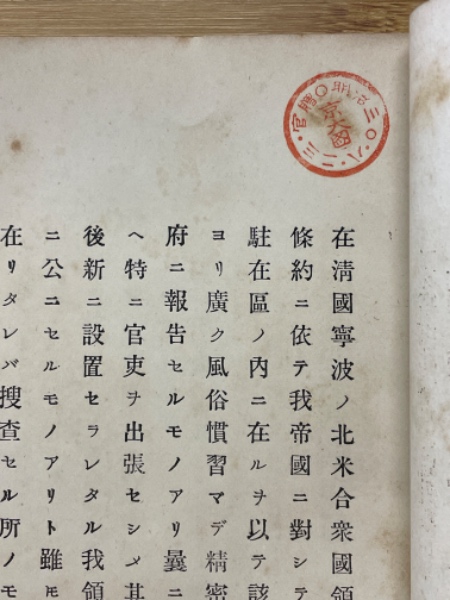 在淸國寧波ノ北米合衆國領
條約ニ依テ我帝國ニ對シテ
駐在區ノ內ニ在ルヲ以テ該
ヨリ廣ク風俗慣習マデ精密
府ニ報吿セルモノアリ曩ニ
ヘ特ニ官吏ヲ出張セシメ其
後新ニ設置セラレタル我領
ニ公ニセルモノアリト雖モ
在リタレバ搜查セル所ノモ